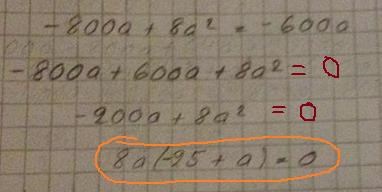 -800a + 8a² = -600a
-800a + 600a + 8a² = 0
-200a + 8a² = 0
8a(-25 + a) = 0